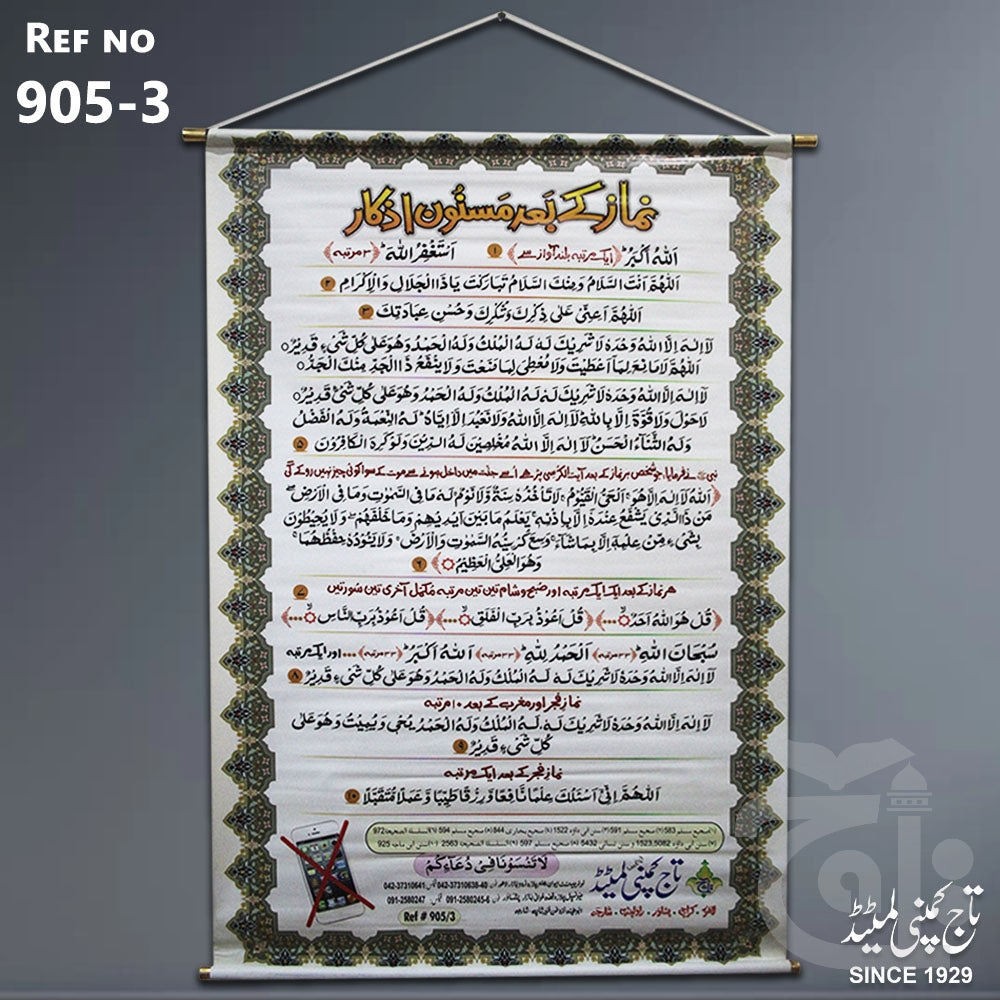 REF NO
905-3
نماز کے بعد مسنون اذکار
اَللّٰهُ اَكْبَرُ ﴿ایک مرتبہ بلند آواز سے﴾ ۱ اَسْتَغْفِرُ اللّٰهَ ﴿۳ مرتبہ﴾
اَللّٰهُمَّ اَنْتَ السَّلَامُ وَمِنْكَ السَّلَامُ تَبَارَكْتَ يَاذَا الْجَلَالِ وَالْاِكْرَامِ ۲
اَللّٰهُمَّ اَعِنِّیْ عَلٰی ذِكْرِكَ وَشُكْرِكَ وَحُسْنِ عِبَادَتِكَ ۳
لَآ اِلٰهَ اِلَّا اللّٰهُ وَحْدَهٗ لَا شَرِيْكَ لَهٗ لَهُ الْمُلْكُ وَلَهُ الْحَمْدُ وَهُوَ عَلٰی كُلِّ شَیْءٍ قَدِيْرٌ
اَللّٰهُمَّ لَا مَانِعَ لِمَا اَعْطَيْتَ وَلَا مُعْطِیَ لِمَا مَنَعْتَ وَلَا يَنْفَعُ ذَا الْجَدِّ مِنْكَ الْجَدُّ
لَآ اِلٰهَ اِلَّا اللّٰهُ وَحْدَهٗ لَا شَرِيْكَ لَهٗ لَهُ الْمُلْكُ وَلَهُ الْحَمْدُ وَهُوَ عَلٰی كُلِّ شَیْءٍ قَدِيْرٌ
لَا حَوْلَ وَلَا قُوَّةَ اِلَّا بِاللّٰهِ لَآ اِلٰهَ اِلَّا اللّٰهُ وَلَا نَعْبُدُ اِلَّا اِيَّاهُ لَهُ النِّعْمَةُ وَلَهُ الْفَضْلُ
وَلَهُ الثَّنَاءُ الْحَسَنُ لَآ اِلٰهَ اِلَّا اللّٰهُ مُخْلِصِيْنَ لَهُ الدِّيْنَ وَلَوْ كَرِهَ الْكَافِرُوْنَ ۵
نبی ﷺ نے فرمایا، جو شخص ہر نماز کے بعد آیت الکرسی پڑھے اُسے جنت میں داخل ہونے سے موت کے سوا کوئی چیز نہیں روکے گی
﴿اَللّٰهُ لَآ اِلٰهَ اِلَّا هُوَ اَلْحَیُّ الْقَيُّوْمُ لَا تَاْخُذُهٗ سِنَةٌ وَّلَا نَوْمٌ لَهٗ مَا فِی السَّمٰوٰتِ وَمَا فِی الْاَرْضِ
مَنْ ذَا الَّذِیْ يَشْفَعُ عِنْدَهٗ اِلَّا بِاِذْنِهٖ يَعْلَمُ مَا بَيْنَ اَيْدِيْهِمْ وَمَا خَلْفَهُمْ وَلَا يُحِيْطُوْنَ
بِشَیْءٍ مِّنْ عِلْمِهٖ اِلَّا بِمَا شَاءَ وَسِعَ كُرْسِيُّهُ السَّمٰوٰتِ وَالْاَرْضَ وَلَا يَئُوْدُهٗ حِفْظُهُمَا
وَهُوَ الْعَلِیُّ الْعَظِيْمُ﴾ ۶
ہر نماز کے بعد ایک ایک مرتبہ اور صبح و شام تین تین مرتبہ مکمل آخری تین سورتیں ۷
﴿قُلْ هُوَ اللّٰهُ اَحَدٌ...﴾ ﴿قُلْ اَعُوْذُ بِرَبِّ الْفَلَقِ...﴾ ﴿قُلْ اَعُوْذُ بِرَبِّ النَّاسِ...﴾
سُبْحَانَ اللّٰهِ ﴿۳۳ مرتبہ﴾ اَلْحَمْدُ لِلّٰهِ ﴿۳۳ مرتبہ﴾ اَللّٰهُ اَكْبَرُ ﴿۳۳ مرتبہ﴾ ... اور ایک مرتبہ
لَآ اِلٰهَ اِلَّا اللّٰهُ وَحْدَهٗ لَا شَرِيْكَ لَهٗ لَهُ الْمُلْكُ وَلَهُ الْحَمْدُ وَهُوَ عَلٰی كُلِّ شَیْءٍ قَدِيْرٌ ۸
نماز فجر اور مغرب کے بعد ۱۰ مرتبہ
لَآ اِلٰهَ اِلَّا اللّٰهُ وَحْدَهٗ لَا شَرِيْكَ لَهٗ لَهُ الْمُلْكُ وَلَهُ الْحَمْدُ يُحْیٖ وَيُمِيْتُ وَهُوَ عَلٰی
كُلِّ شَیْءٍ قَدِيْرٌ ۹
نماز فجر کے بعد ایک مرتبہ
اَللّٰهُمَّ اِنِّیْ اَسْئَلُكَ عِلْمًا نَّافِعًا وَّرِزْقًا طَيِّبًا وَّعَمَلًا مُّتَقَبَّلًا ۱۰
صحیح مسلم 583 صحیح مسلم 591 سنن ابی داؤد 1522 صحیح بخاری 844 صحیح مسلم 594 السلسلة الصحیحة 972
سنن ابی داؤد 1523,5082 سنن نسائی 5432 صحیح مسلم 597 السلسلة الصحیحة 2563 سنن ابن ماجه 925
لَا تَنْسَوْنَا فِیْ دُعَاءِكُمْ
تاج کمپنی لمیٹڈ
042-37310638-40 042-37310641
091-2580245-6 091-2580247
لاہور۔ کراچی۔ پشاور۔ راولپنڈی۔ شارجہ
Ref # 905/3
تاج کمپنی لمیٹڈ
SINCE 1929